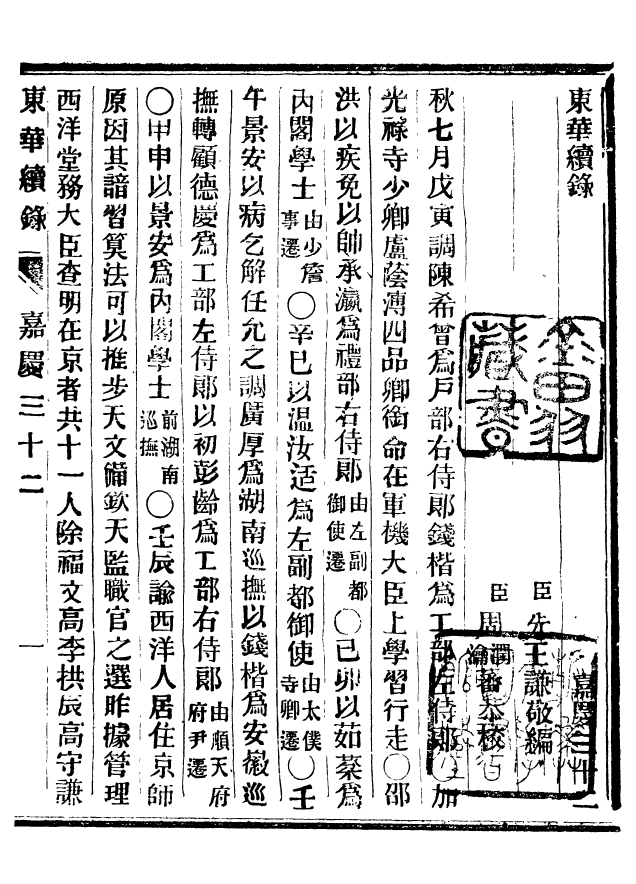 東華續錄
嘉慶三十二
臣王先謙敬編
臣周潤蕃
周瀹蕃恭校
秋七月戊寅調陳希曾爲戶部右侍郎錢楷爲工部左侍郎○加
光祿寺少卿盧蔭溥四品卿銜命在軍機大臣上學習行走○邵
洪以疾免以帥承瀛爲禮部右侍郎由左副都御使遷○己卯以茹棻爲
內閣學士由少詹事遷○辛巳以溫汝适爲左副都御使由太僕寺卿遷○壬
午景安以病乞解任允之調廣厚爲湖南巡撫以錢楷爲安徽巡
撫轉顧德慶爲工部左侍郎以初彭齡爲工部右侍郎由順天府府尹遷
○甲申以景安爲內閣學士前湖南巡撫○壬辰諭西洋人居住京師
原因其諳習算法可以推步天文備欽天監職官之選昨據管理
西洋堂務大臣查明在京者共十一人除福文高李拱辰高守謙
東華續錄 嘉慶三十二 一